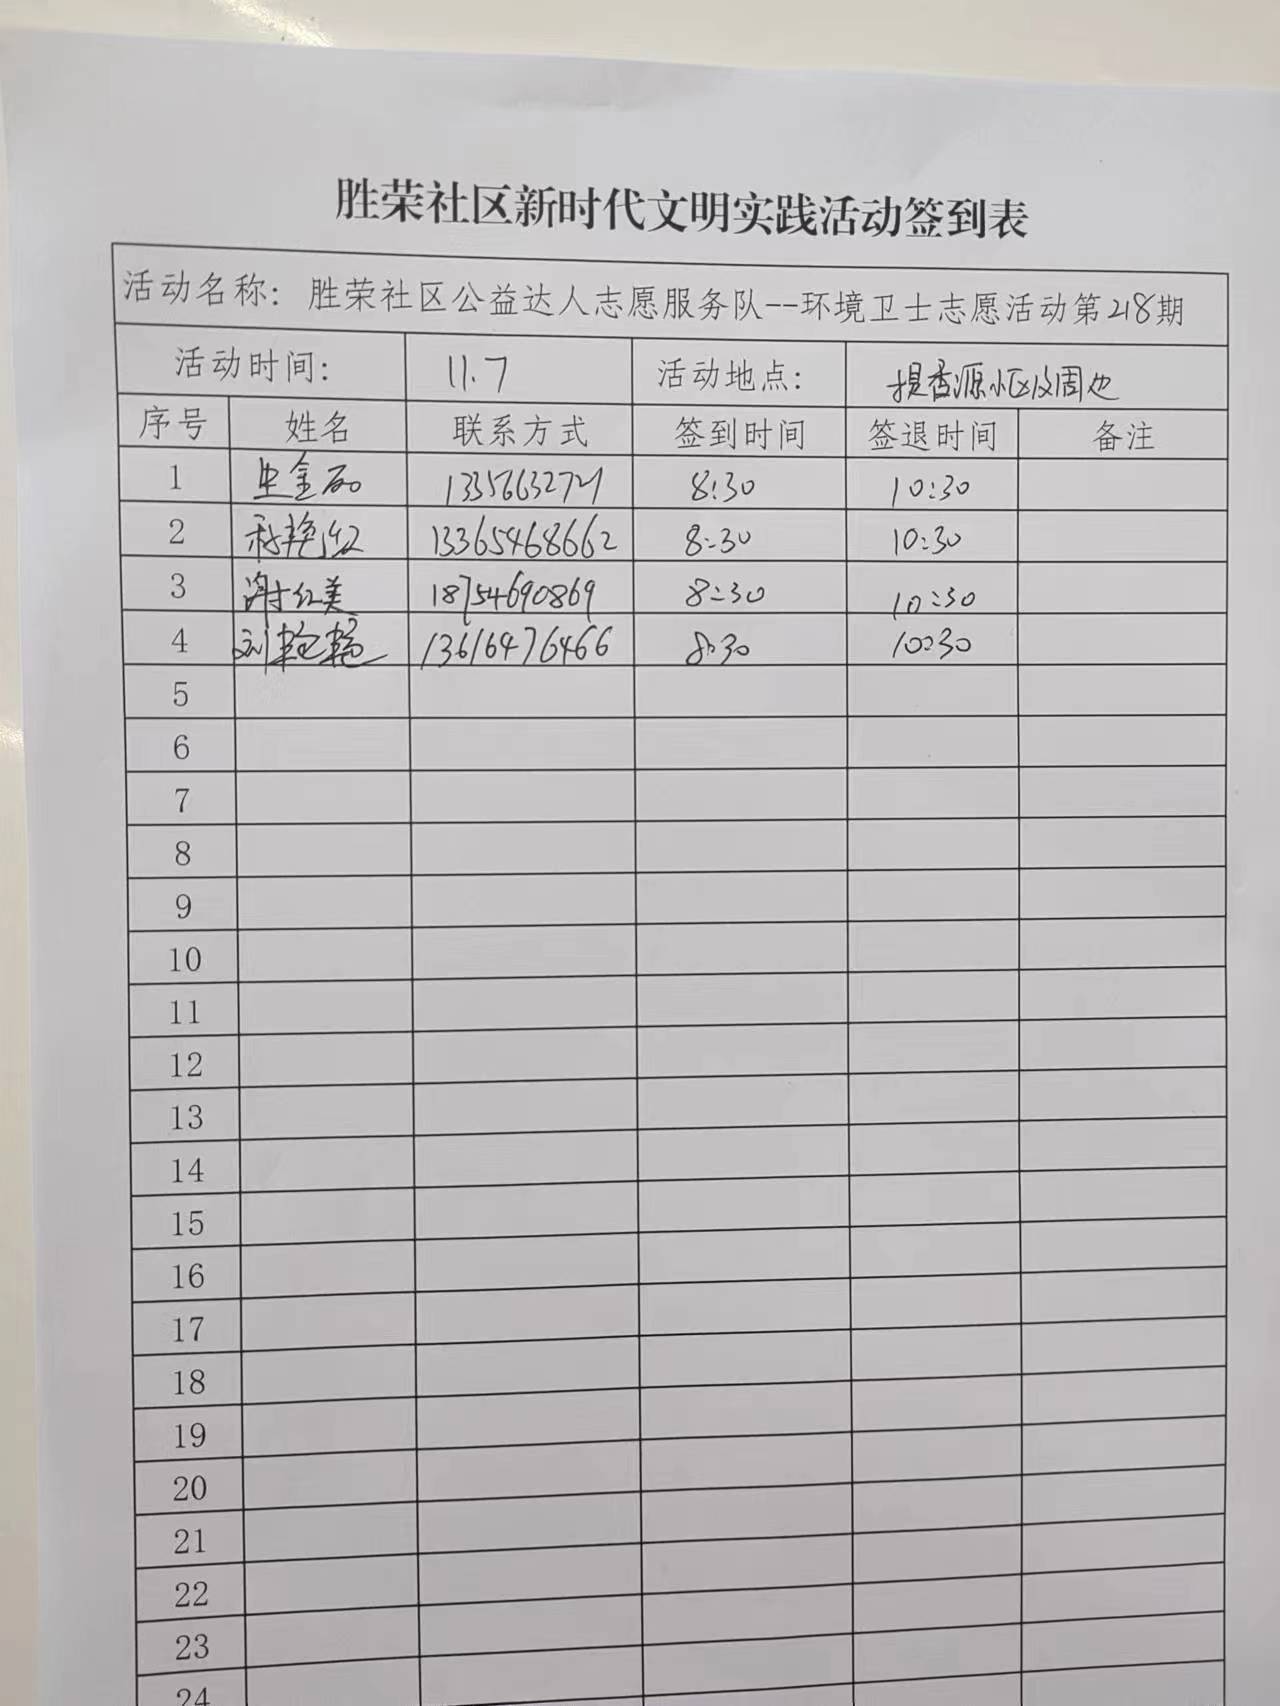 胜荣社区新时代文明实践活动签到表
活动名称：胜荣社区公益达人志愿服务队--环境卫士志愿活动第218期
活动时间： 11.7 活动地点： 提香源小区及周边
序号 姓名 联系方式 签到时间 签退时间 备注
1 8:30 10:30
2 13365468662 8:30 10:30
3 谢红美 18754690869 8:30 10:30
4 刘艳艳 13616476466 8:30 10:30
5
6
7
8
9
10
11
12
13
14
15
16
17
18
19
20
21
22
23
24